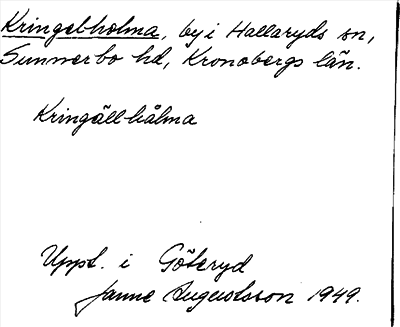 Kringelholma, by i Hallaryds sn,
Sunnerbo hd, Kronobergs län.
Kringäll-hålma
Uppt. i Göteryd
Janne Augustsson 1949.